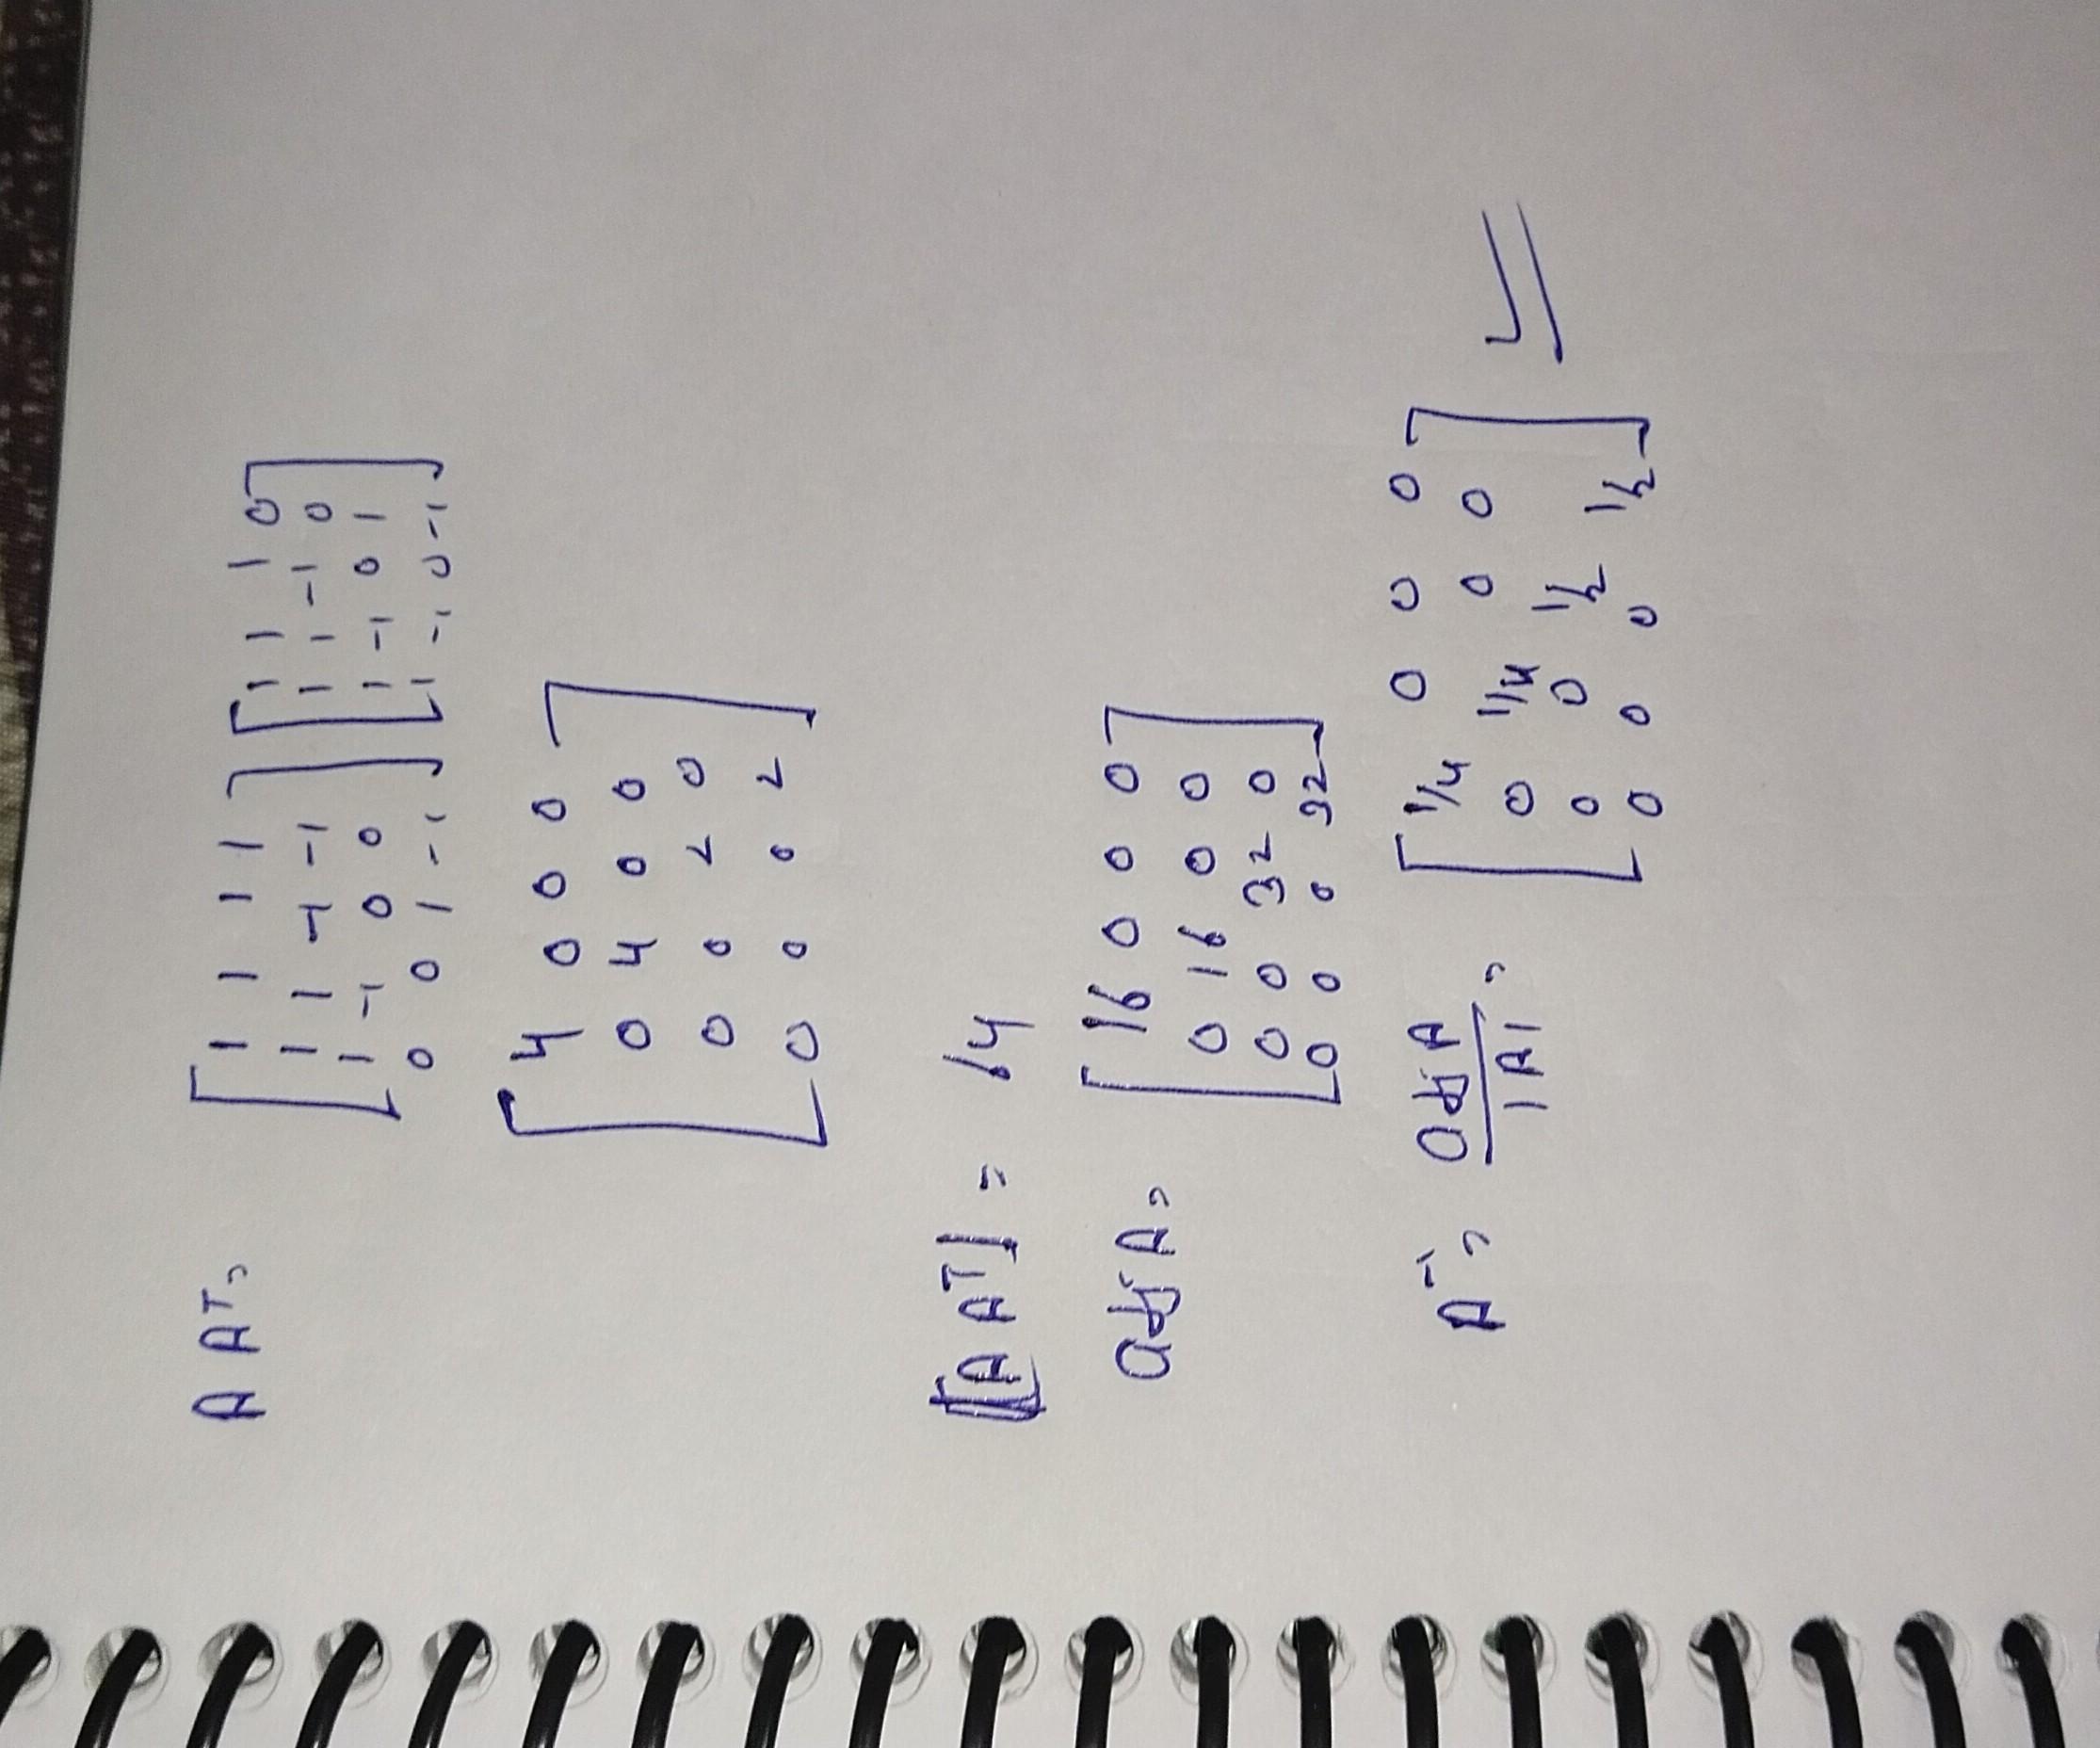 A Aᵀ = [1 1 1 1] [1 1 1 0]
[1 1 -1 -1] [1 1 -1 0]
[1 -1 0 0] [1 -1 0 1]
[0 0 1 -1] [1 -1 0 -1]
[4 0 0 0]
[0 4 0 0]
[0 0 2 0]
[0 0 0 2]
|A Aᵀ| = 64
adj A = [16 0 0 0]
[0 16 0 0]
[0 0 32 0]
[0 0 0 32]
A⁻¹ = adj A / |A| = [1/4 0 0 0]
[0 1/4 0 0]
[0 0 1/2 0]
[0 0 0 1/2]